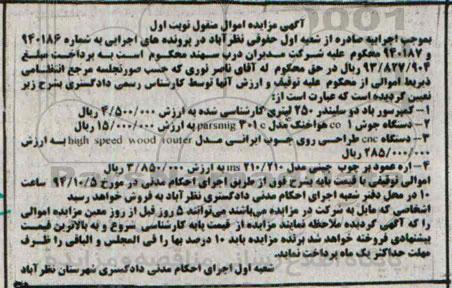 آگهی مزایده اموال منقول نوبت اول
بموجب اجراییه صادره از شعبه اول حقوقی نظرآباد در پرونده های اجرایی به شماره ۹۴۰۱۸۶
و ۹۴۰۱۸۷ محکوم علیه شرکت مدیران درب سهند محکوم است به پرداخت مبلغ
۹۳/۸۲۷/۹۰۴ ریال در حق محکوم له آقای ناصر نوری که حسب صورتجلسه مرجع انتظامی
ذیربط اموالی از محکوم علیه توقیف و ارزش آنها توسط کارشناس رسمی دادگستری بشرح زیر
تعیین گردیده است که عبارت است از:
۱- کمپرسور باد دو سیلندر ۲۵۰ لیتری کارشناسی شده به ارزش ۴/۵۰۰/۰۰۰ ریال
۲- دستگاه جوش co ۱ هواخنک مدل parsmig ۳۰۱ c به ارزش ۱۵/۰۰۰/۰۰۰ ریال
۳- دستگاه cnc طراحی روی چوب ایرانی مدل high speed wood router به ارزش
۲۸۵/۰۰۰/۰۰۰ ریال
۴- اره عمود بر چوب چینی مدل ms ۲۱۰/۲۱۰ به ارزش ۳/۸۵۰/۰۰۰ ریال
اموالی توقیفی با قیمت پایه بشرح فوق از طریق اجرای احکام مدنی در مورخ ۹۴/۱۰/۵ ساعت
۱۰ در محل دفتر شعبه اجرای احکام مدنی دادگستری نظرآباد به فروش خواهد رسید
اشخاصی که مایل به شرکت در مزایده میباشند می‌توانند ۵ روز قبل از روز معین مزایده اموالی
را که آگهی گردیده ملاحظه نمایند مزایده از قیمت پایه کارشناسی شروع و به بالاترین قیمت
پیشنهادی فروخته خواهد شد برنده مزایده باید ۱۰ درصد بها را فی المجلس و الباقی را ظرف
مهلت حداکثر یک ماه پرداخت نماید.
شعبه اول اجرای احکام مدنی دادگستری شهرستان نظرآباد